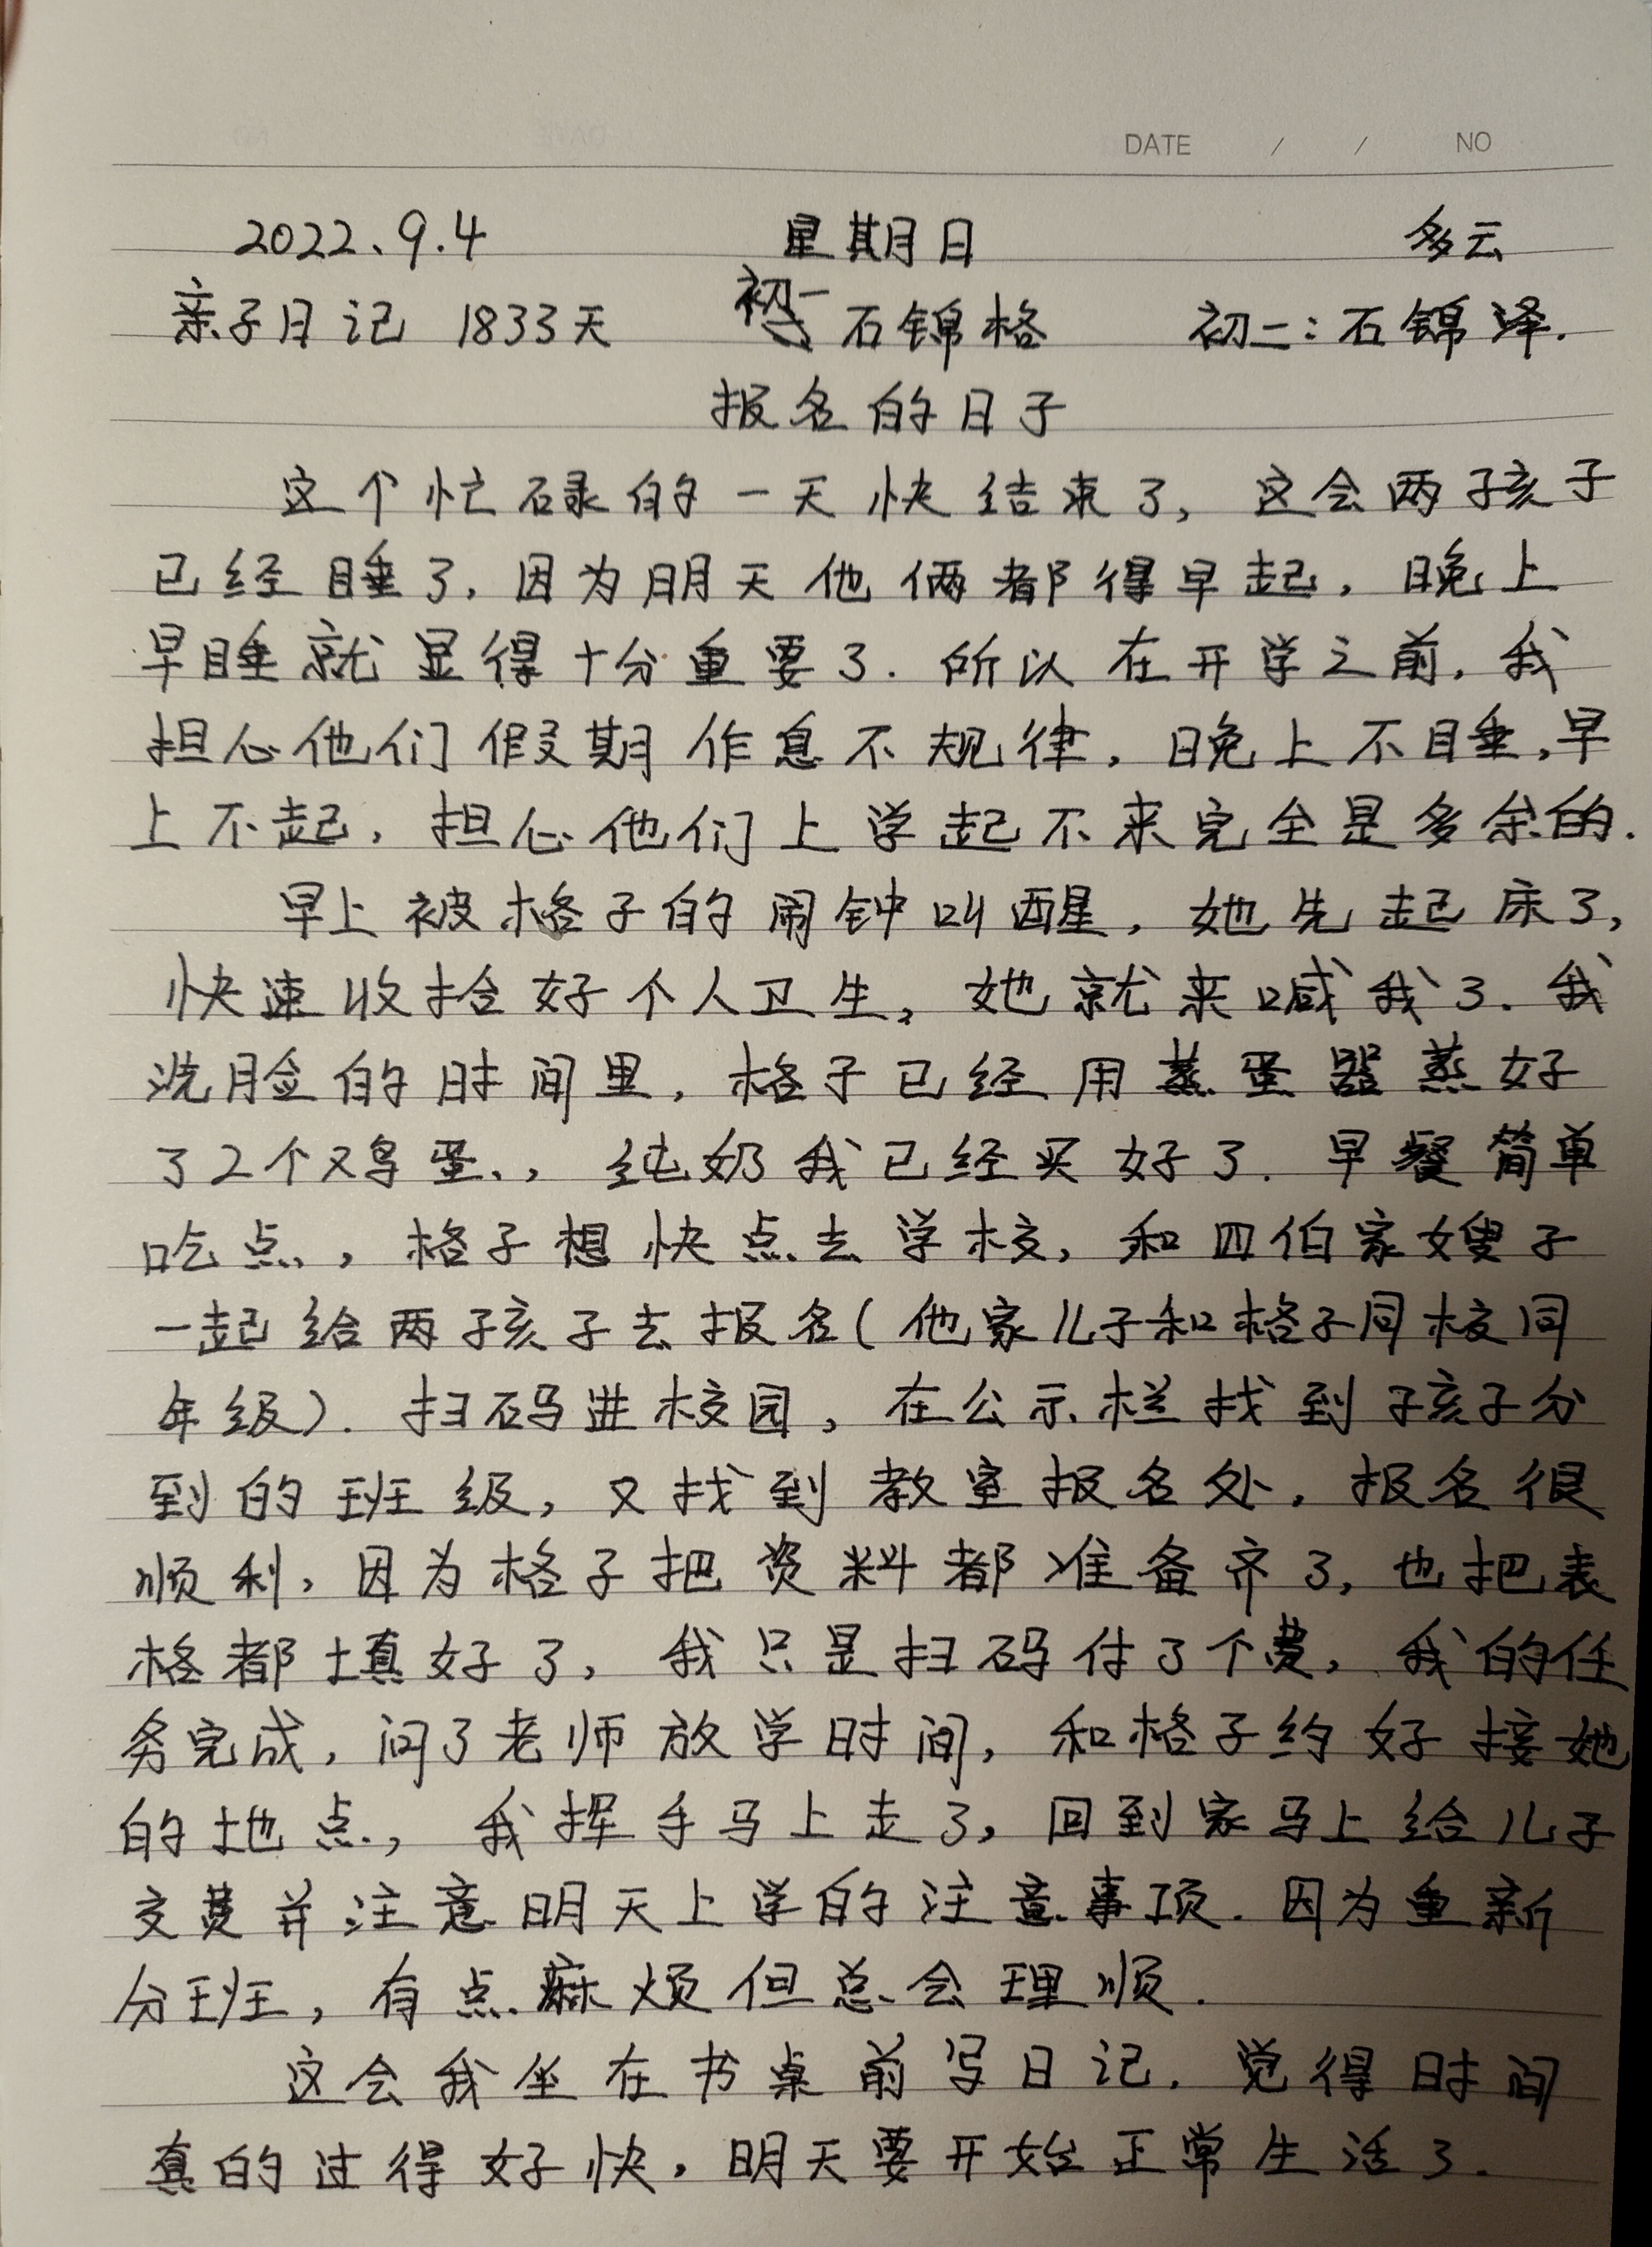 DATE / / NO
2022、9.4 星期日 多云
亲子日记 1833天 初一 石锦格 初二:石锦泽.
报名的日子
这个忙碌的一天快结束了,这会两孩子
已经睡了,因为明天他俩都得早起,晚上
早睡就显得十分重要了.所以在开学之前,我
担心他们假期作息不规律,晚上不睡,早
上不起,担心他们上学起不来完全是多余的.
早上被格子的闹钟叫醒,她先起床了,
快速收拾好个人卫生,她就来喊我了.我
洗脸的时间里,格子已经用蒸蛋器蒸好
了2个鸡蛋,纯奶我已经买好了.早餐简单
吃点,格子想快点去学校,和四伯家嫂子
一起给两孩子去报名(他家儿子和格子同校同
年级).扫码进校园,在公示栏找到孩子分
到的班级,又找到教室报名处,报名很
顺利,因为格子把资料都准备齐了,也把表
格都填好了,我只是扫码付了个费,我的任
务完成,问了老师放学时间,和格子约好接她
的地点,我挥手马上走了,回到家马上给儿子
交费并注意明天上学的注意事项.因为重新
分班,有点麻烦但总会理顺.
这会我坐在书桌前写日记.觉得时间
真的过得好快,明天要开始正常生活了.